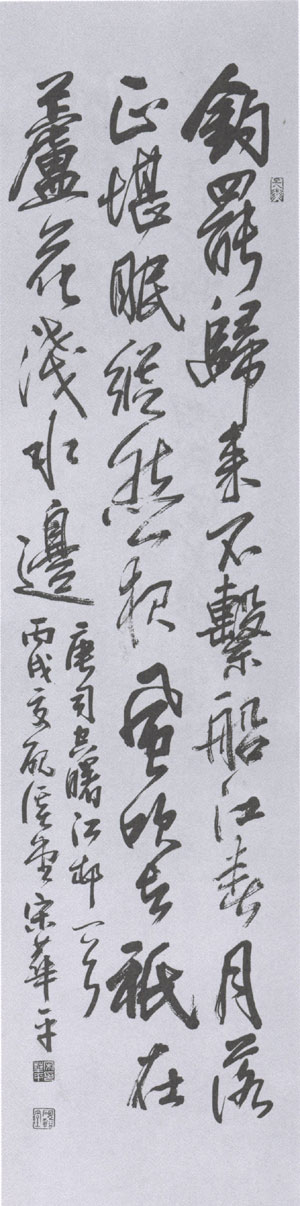 釣罷歸来不繫船江春月落
正堪眠縱然一夜風吹去祇在
蘆花淺水邊
唐司空曙江邨一首
丙戌夏 宋華平